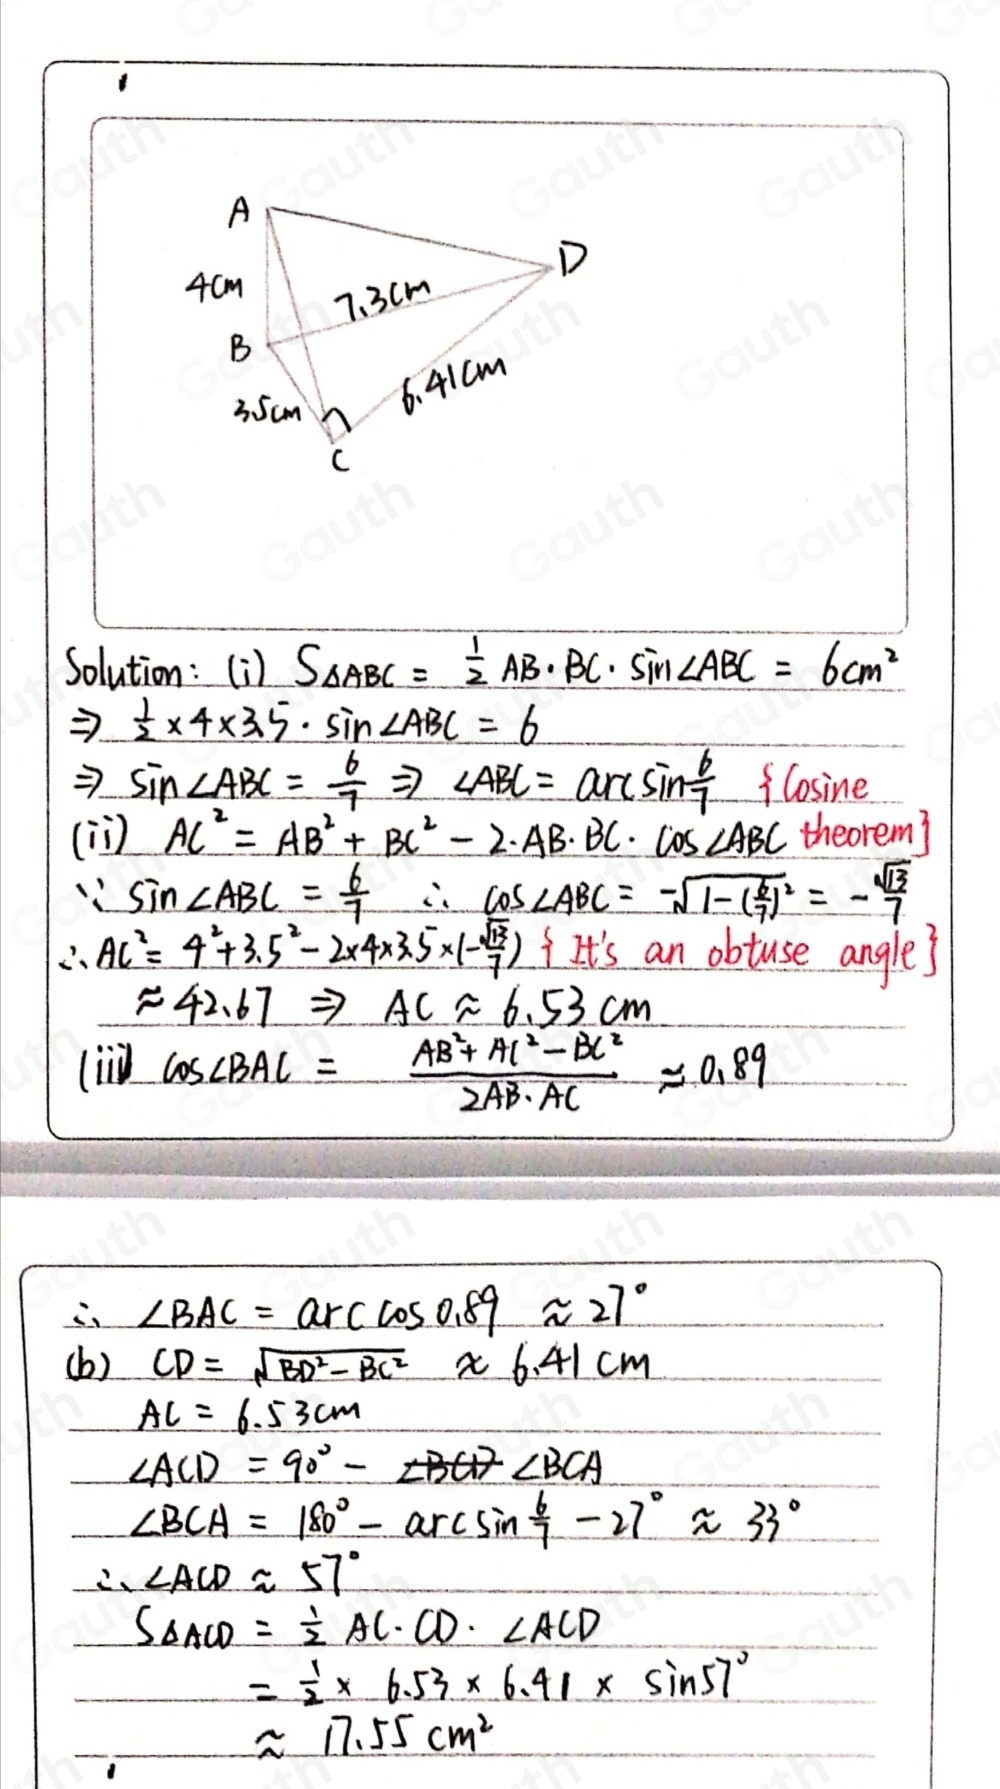 A
D
4cm
7.3cm
B
6.41cm
3.5cm
C
Solution: (i) S△ABC = 1/2 AB·BC·sin∠ABC = 6cm²
⇒ 1/2 × 4 × 3.5 · sin∠ABC = 6
⇒ sin∠ABC = 6/7 ⇒ ∠ABC = arcsin 6/7 {Cosine
(ii) AC² = AB² + BC² - 2·AB·BC·cos∠ABC theorem}
∵ sin∠ABC = 6/7 ∴ cos∠ABC = -√(1-(6/7)²) = -√13/7
∴ AC² = 4² + 3.5² - 2×4×3.5×(-√13/7) {It's an obtuse angle}
≈ 42.67 ⇒ AC ≈ 6.53 cm
(iii) cos∠BAC = (AB² + AC² - BC²)/(2AB·AC) ≈ 0.89
∴ ∠BAC = arccos 0.89 ≈ 27°
(b) CD = √(BD² - BC²) ≈ 6.41 cm
AC = 6.53cm
∠ACD = 90° - ∠BCA
∠BCA = 180° - arcsin 6/7 - 27° ≈ 33°
∴ ∠ACD ≈ 57°
S△ACD = 1/2 AC·CD·∠ACD
= 1/2 × 6.53 × 6.41 × sin57°
≈ 17.55 cm²
Gauth